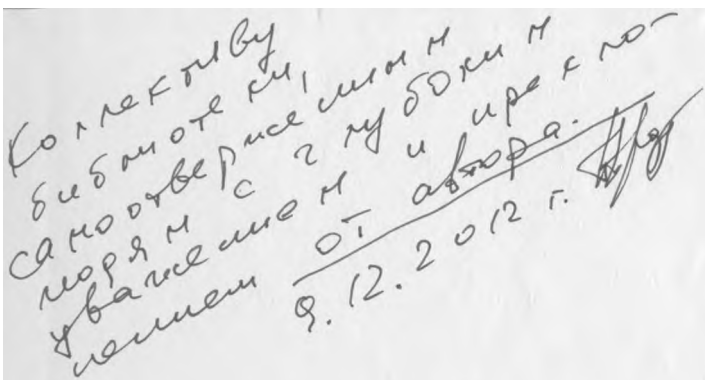 Коллективу
библиотеки,
самоотверженным
людям с глубоким
уважением и прекло-
нением от автора.
9.12.2012 г.